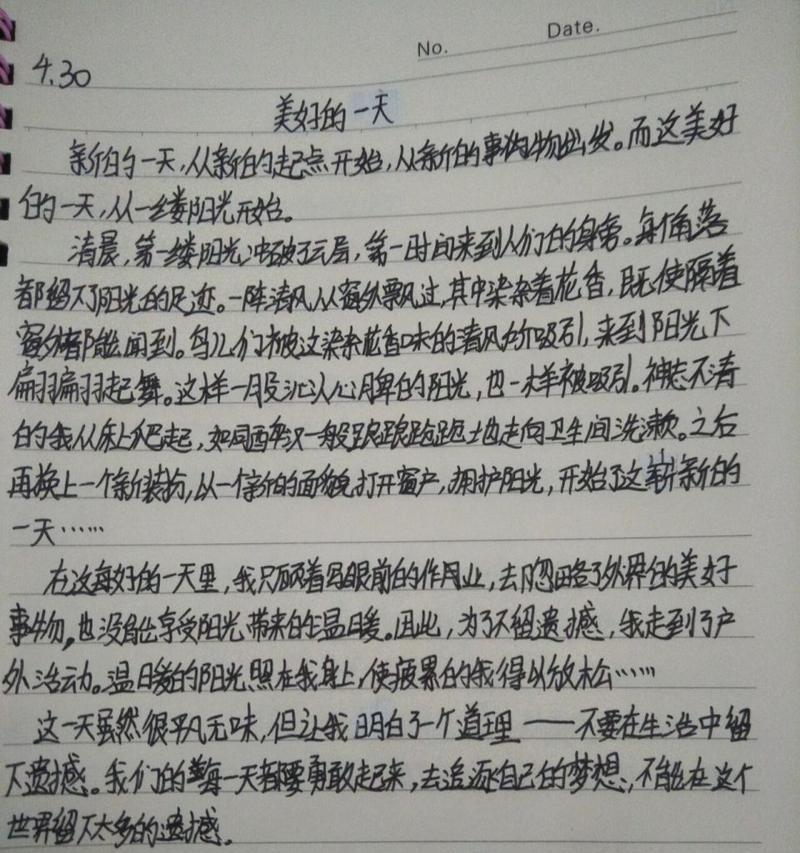 No.
Date.
4.30
美好的一天
新的一天,从新的起点开始,从新的事物出发。而这美好
的一天,从一缕阳光开始。
清晨,第一缕阳光冲破了云层,第一时间来到人们的身旁。每个角落
都留下了阳光的足迹。一阵清风从窗外飘过,其中染杂着花香,既使隔着
窗外都能闻到。鸟儿们被这染杂花香味的清风所吸引,来到阳光下
翩翩起舞。这样一股沁人心脾的阳光,也一样被吸引。神志不清
的我从床上爬起,如同醉汉一般踉踉跄跄地走向卫生间洗漱。之后
再换上一个新装扮,以一个新的面貌打开窗户,拥护阳光,开始了这崭新的
一天……
在这每好的一天里,我只顾着写眼前的作业,去忽略了外界的美好
事物,也没有去享受阳光带来的温暖。因此,为了不留遗憾,我走到了户
外活动。温暖的阳光照在我身上,使疲累的我得以放松……
这一天虽然很平凡无味,但让我明白了一个道理——不要在生活中留
下遗憾。我们的每一天都要勇敢起来,去追逐自己的梦想,不能在这个
世界留下太多的遗憾。